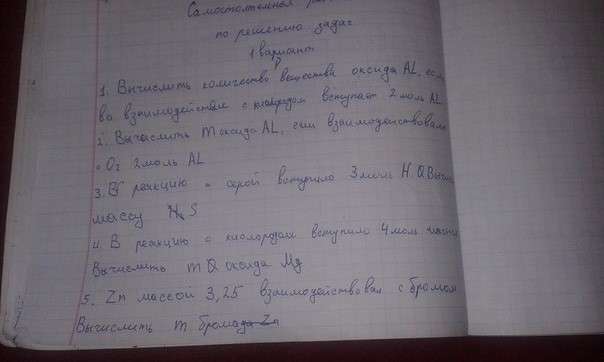 Самостоятельная
по решению задач
1 вариант
1. Вычислить количество вещества оксида AL, если
во взаимодействие с кислородом вступает 2 моль AL
2. Вычислить m оксида AL, если взаимодействовали
с O2 2 моль AL
3. В реакцию с серой вступило 3 моль H.
массу H2S
4. В реакцию с кислородом вступило 4 моль
Вычислить m оксида Mg
5. Zn массой 3,25 взаимодействовал с бромом
Вычислить m